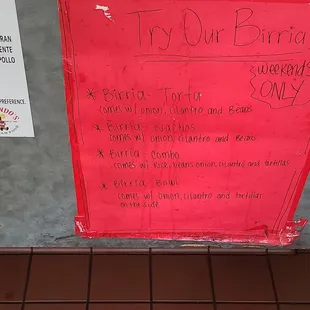 RAN
ENTE
POLLO
PREFERENCE.
NDO'S
Try Our Birria
WEEKENDS
ONLY
* Birria- Torta
comes w/ onion, cilantro and Beans
* Birria- Nachos
comes w/ onion, cilantro and Beans
* Birria- Combo
comes w/ Rice, Beans onion, cilantro and tortillas
* Birria Bowl
comes w/ onion, cilantro and tortillas
on the side